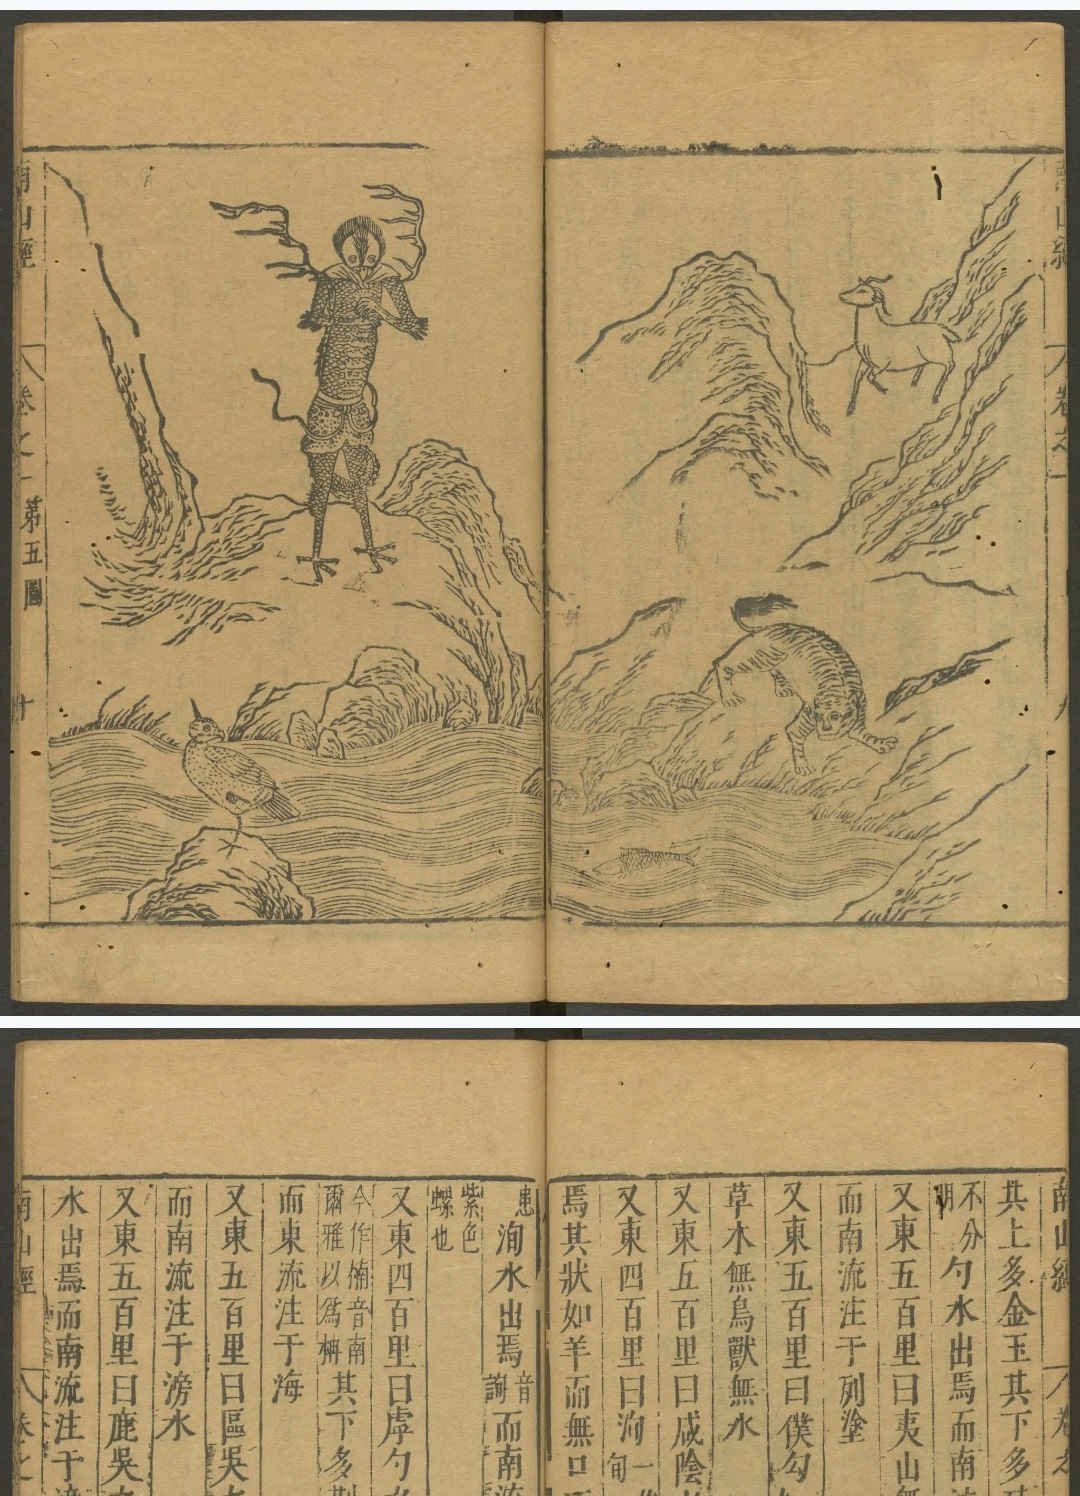 南山經 卷之一
南山經 卷之一 第五圖 十
南山經 卷之
其上多金玉其下多
不分
明
勺水出焉而南
又東五百里曰夷山
而南流注于列塗
又東五百里曰僕勾
草木無鳥獸無水
又東五百里曰咸陰
又東四百里曰洵
一
旬
焉其狀如羊而無口
患
洵水出焉
音
詢
而南流
紫色
螺也
又東四百里曰虖勺
今作楠音南
爾雅以爲柟
其下多
而東流注于海
又東五百里曰區吳
而南流注于滂水
又東五百里曰鹿吳
水出焉而南流注于滂
南山經 卷之